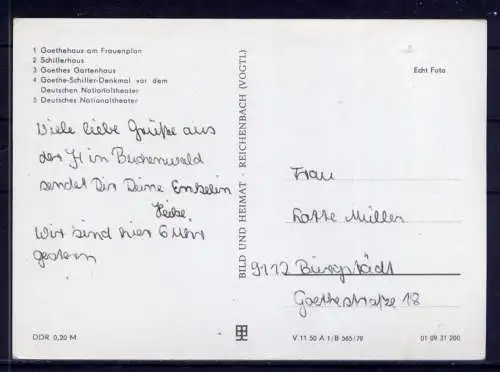 1 Goethehaus am Frauenplan
2 Schillerhaus
3 Goethes Gartenhaus
4 Goethe-Schiller-Denkmal vor dem
Deutschen Nationaltheater
5 Deutsches Nationaltheater
Viele liebe Grüße aus
der JH in Buchenwald
sendet Dir Deine Enkelin
Heike.
Wir sind hier 6 Uhr
gestern
DDR 0,20 M
BILD UND HEIMAT · REICHENBACH (VOGTL)
Echt Foto
Frau
Lotte Müller
9112 Burgstädt
Goethestraße 18
V 11 50 A 1/B 565/79
01 09 31 200